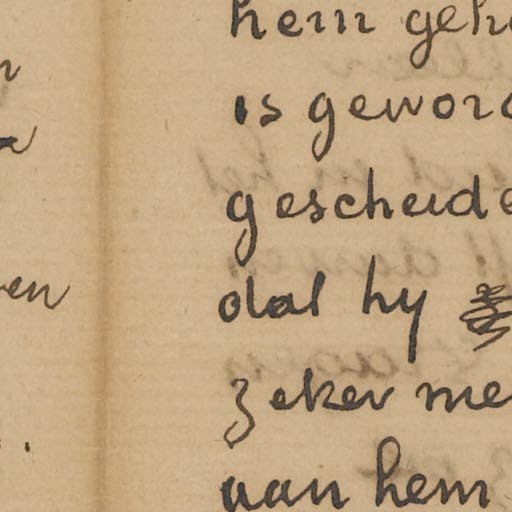 hem geh
is geword
gescheide
dat hy
zeker me
van hem